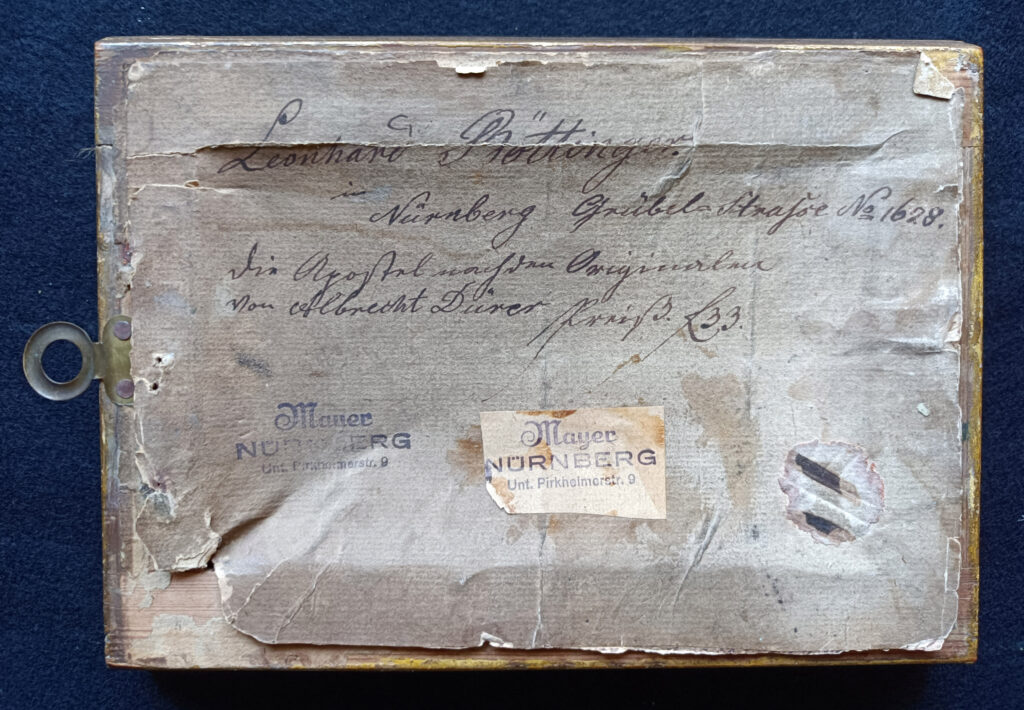 Leonhard Röttinger.
in
Nürnberg Grübel-Strasse No 1628.
Die Apostel nach den Originalen
von Albrecht Dürer Preiß. £33.
Mayer
NÜRNBERG
Unt. Pirkheimerstr. 9
Mayer
NÜRNBERG
Unt. Pirkheimerstr. 9